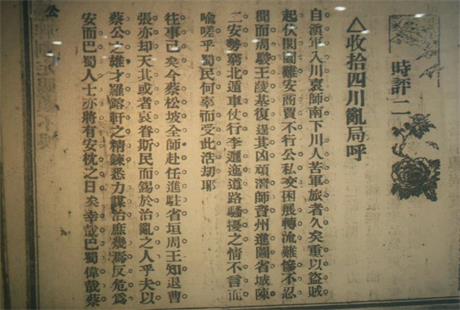 時評二
△收拾四川亂局呼
自滇軍入川袁師南下川人苦軍旅者久矣重以盜賊
起伏閭閻難安商賈不行公私交困展轉流離慘不忍
聞而周駿王陵基復逞其凶頑潛師資州進圖省城陳
二安勢窮北遁車仗行李邐迤道路騷擾之情不言而
喻嗟乎蜀民何辜而受此浩劫耶
往事已矣今蔡松坡全師赴任進駐省垣周王知退曹
張亦却天其或者哀眷斯民而錫於治亂之人乎夫以
蔡公之雄才羅鎔軒之精練悉力謀治庶幾反危為
安而巴蜀人士亦將有安枕之日矣幸哉巴蜀偉哉蔡
公